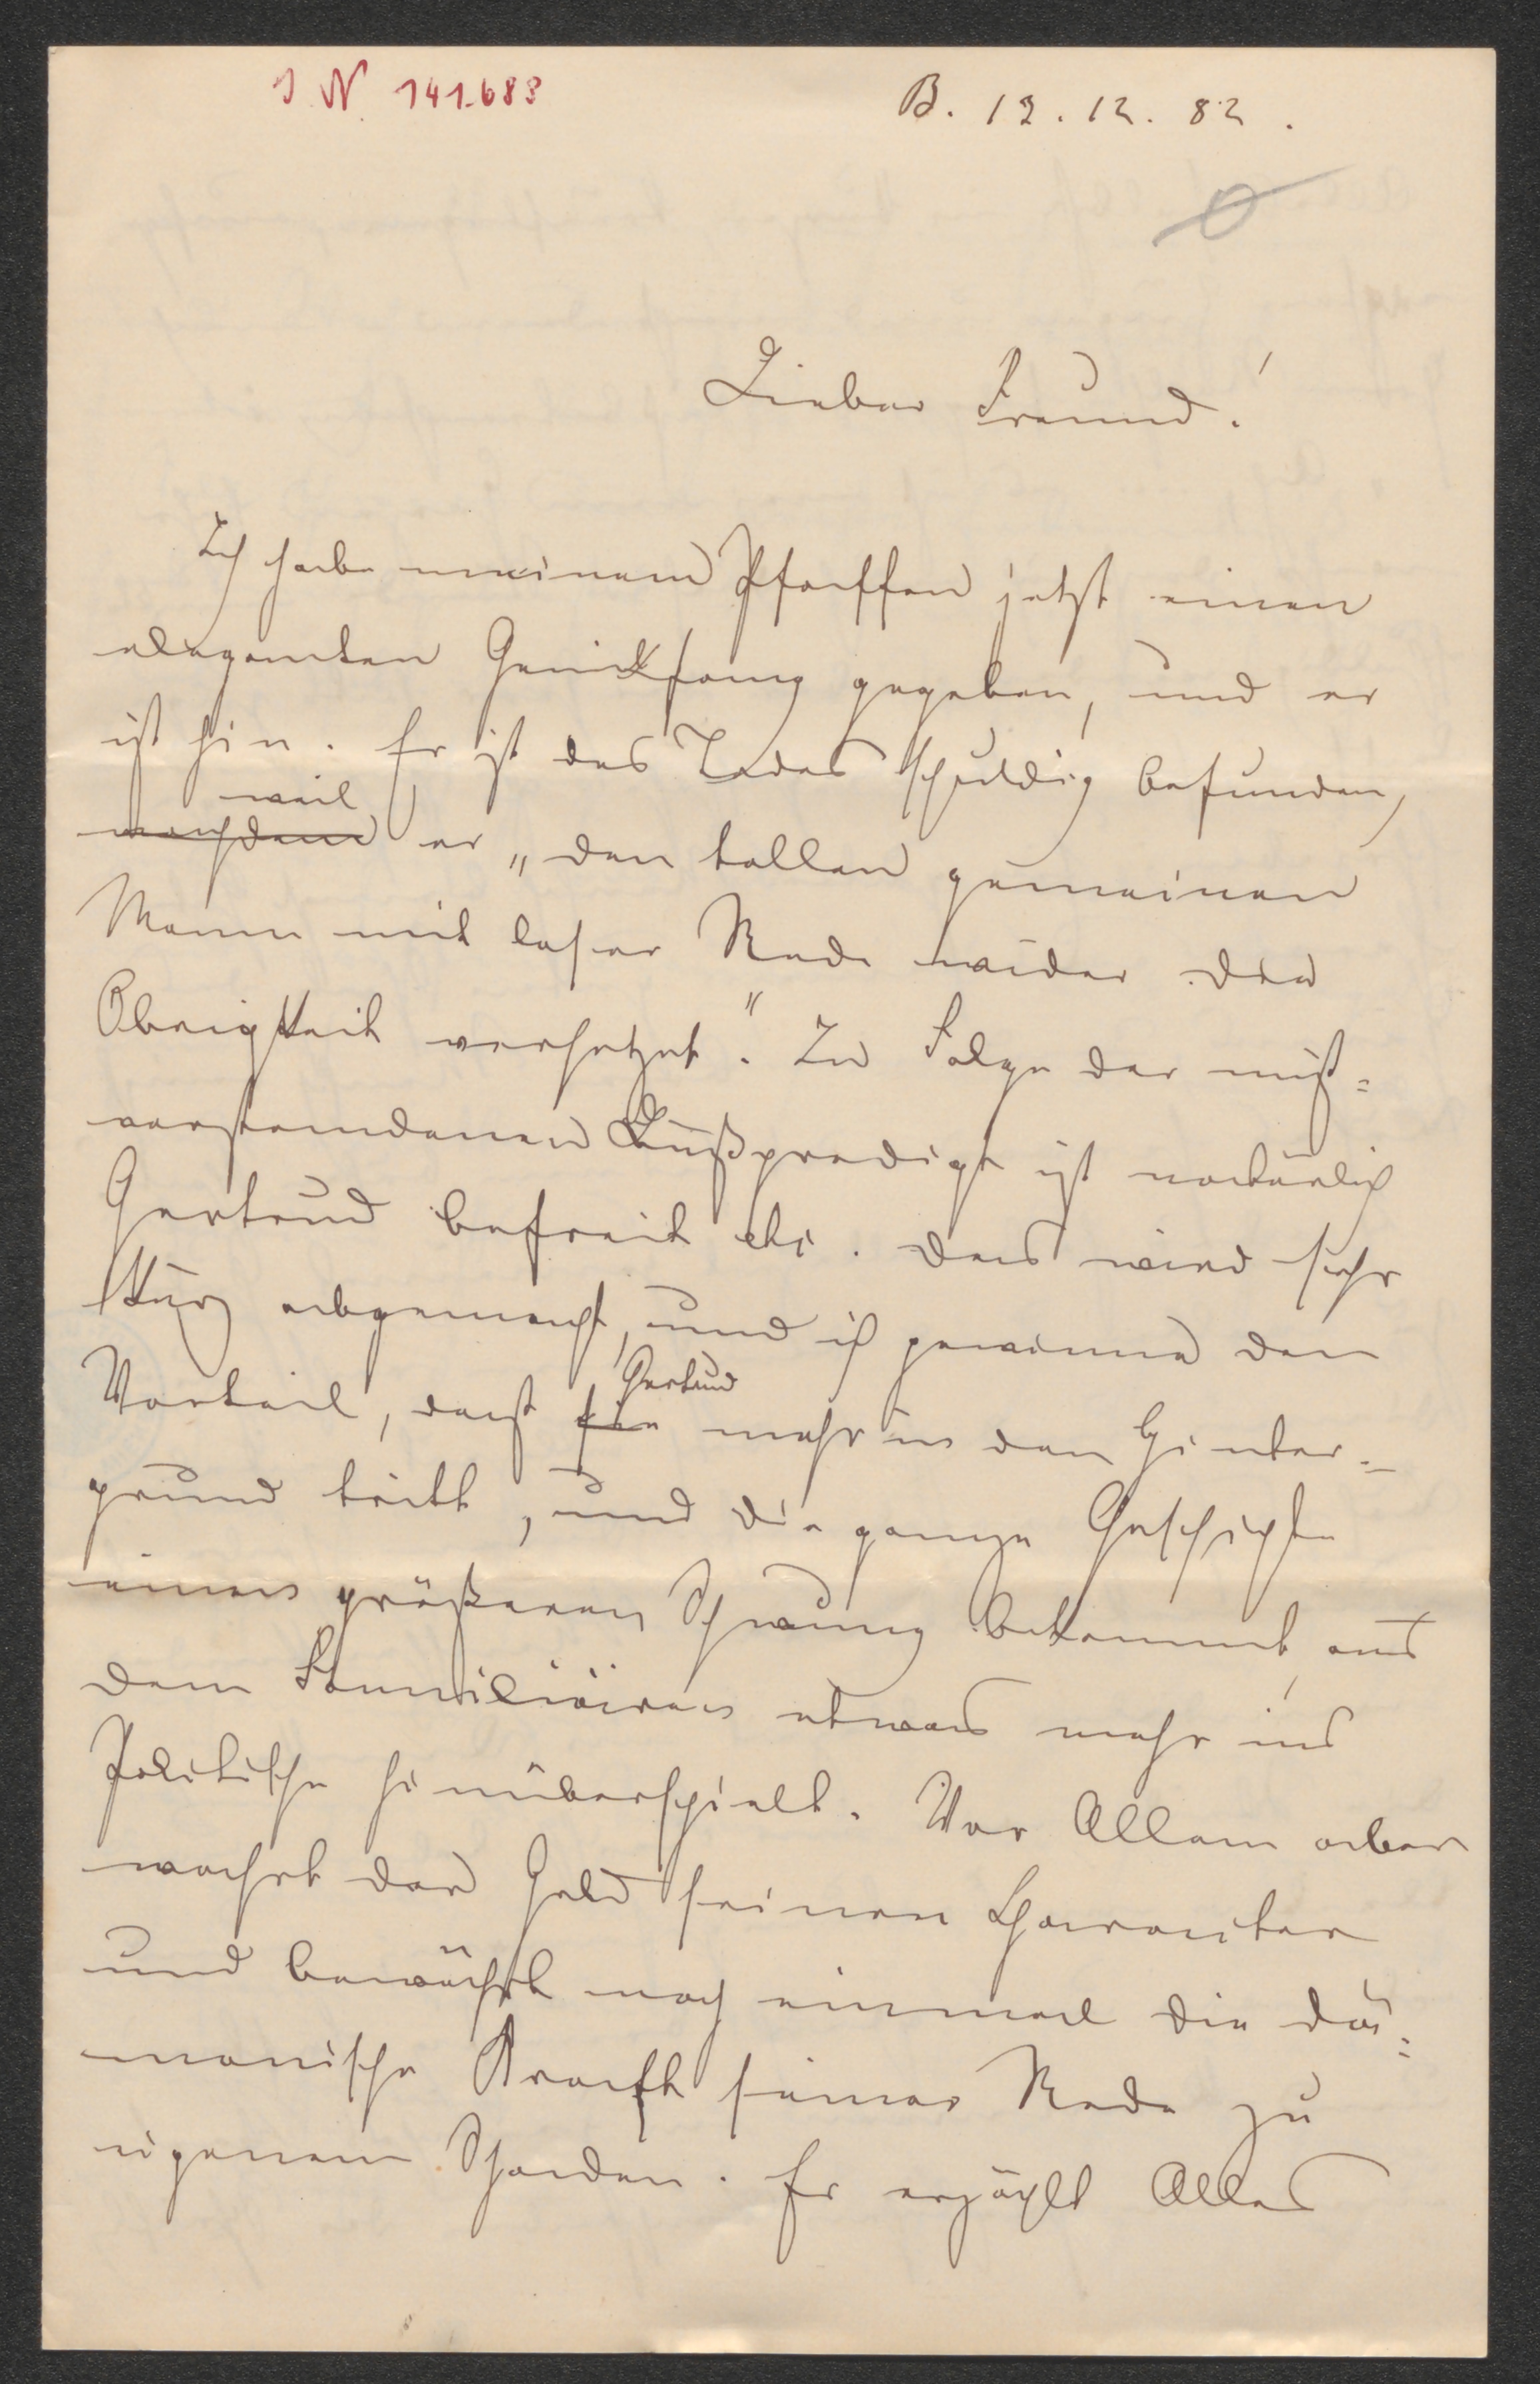 I N 141.688
B. 12.12.82.
Lieber Freund!
Ich habe meinem Pfaffen jetzt einen
eleganten Genickfang gegeben, und er
ist hin. Er ist des Todes schuldig befunden,
weil
nachdem er „den tollen gemeinen
Mann mit loser Rede wider die
Obrigkeit verhetzet". In Folge der miß=
verstandenen Bußpredigt ist natürlich
Gertrud befreit etc. Das wird sehr
kurz abgemacht, und ich gewinne den
Gertrud
Vorteil, daß sie mehr in den Hinter=
grund tritt, und die ganze Geschichte
einen größeren Schwung bekommt, aus
dem Familiären etwas mehr ins
Politische hinüberspielt. Vor Allem aber
wahrt der Held seinen Charakter
und bewährt noch einmal die dä=
monische Kraft seiner Rede zu
eigenem Schaden. Er erzählt Alles